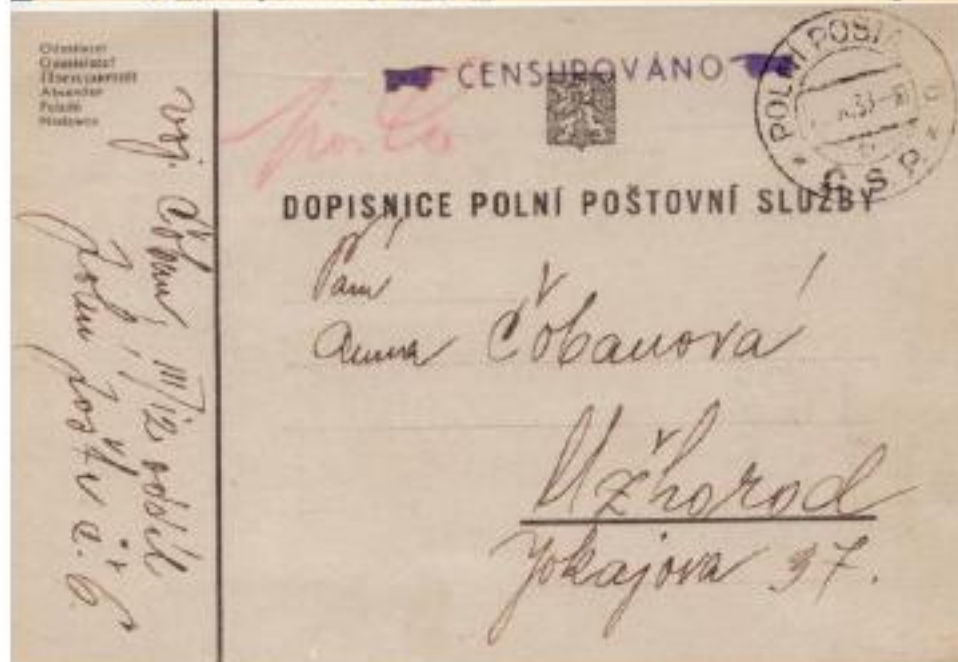 Odesílatel
Odosielateľ
Absender
Feladó
Nadawca
voj. Čoban, III/12 oddíl
polní pošta č. 6.
CENSUROVÁNO
POLNÍ POŠTA
Č S P
DOPISNICE POLNÍ POŠTOVNÍ SLUŽBY
Paní
Anna Čobanová
Užhorod
Jokajova 37.